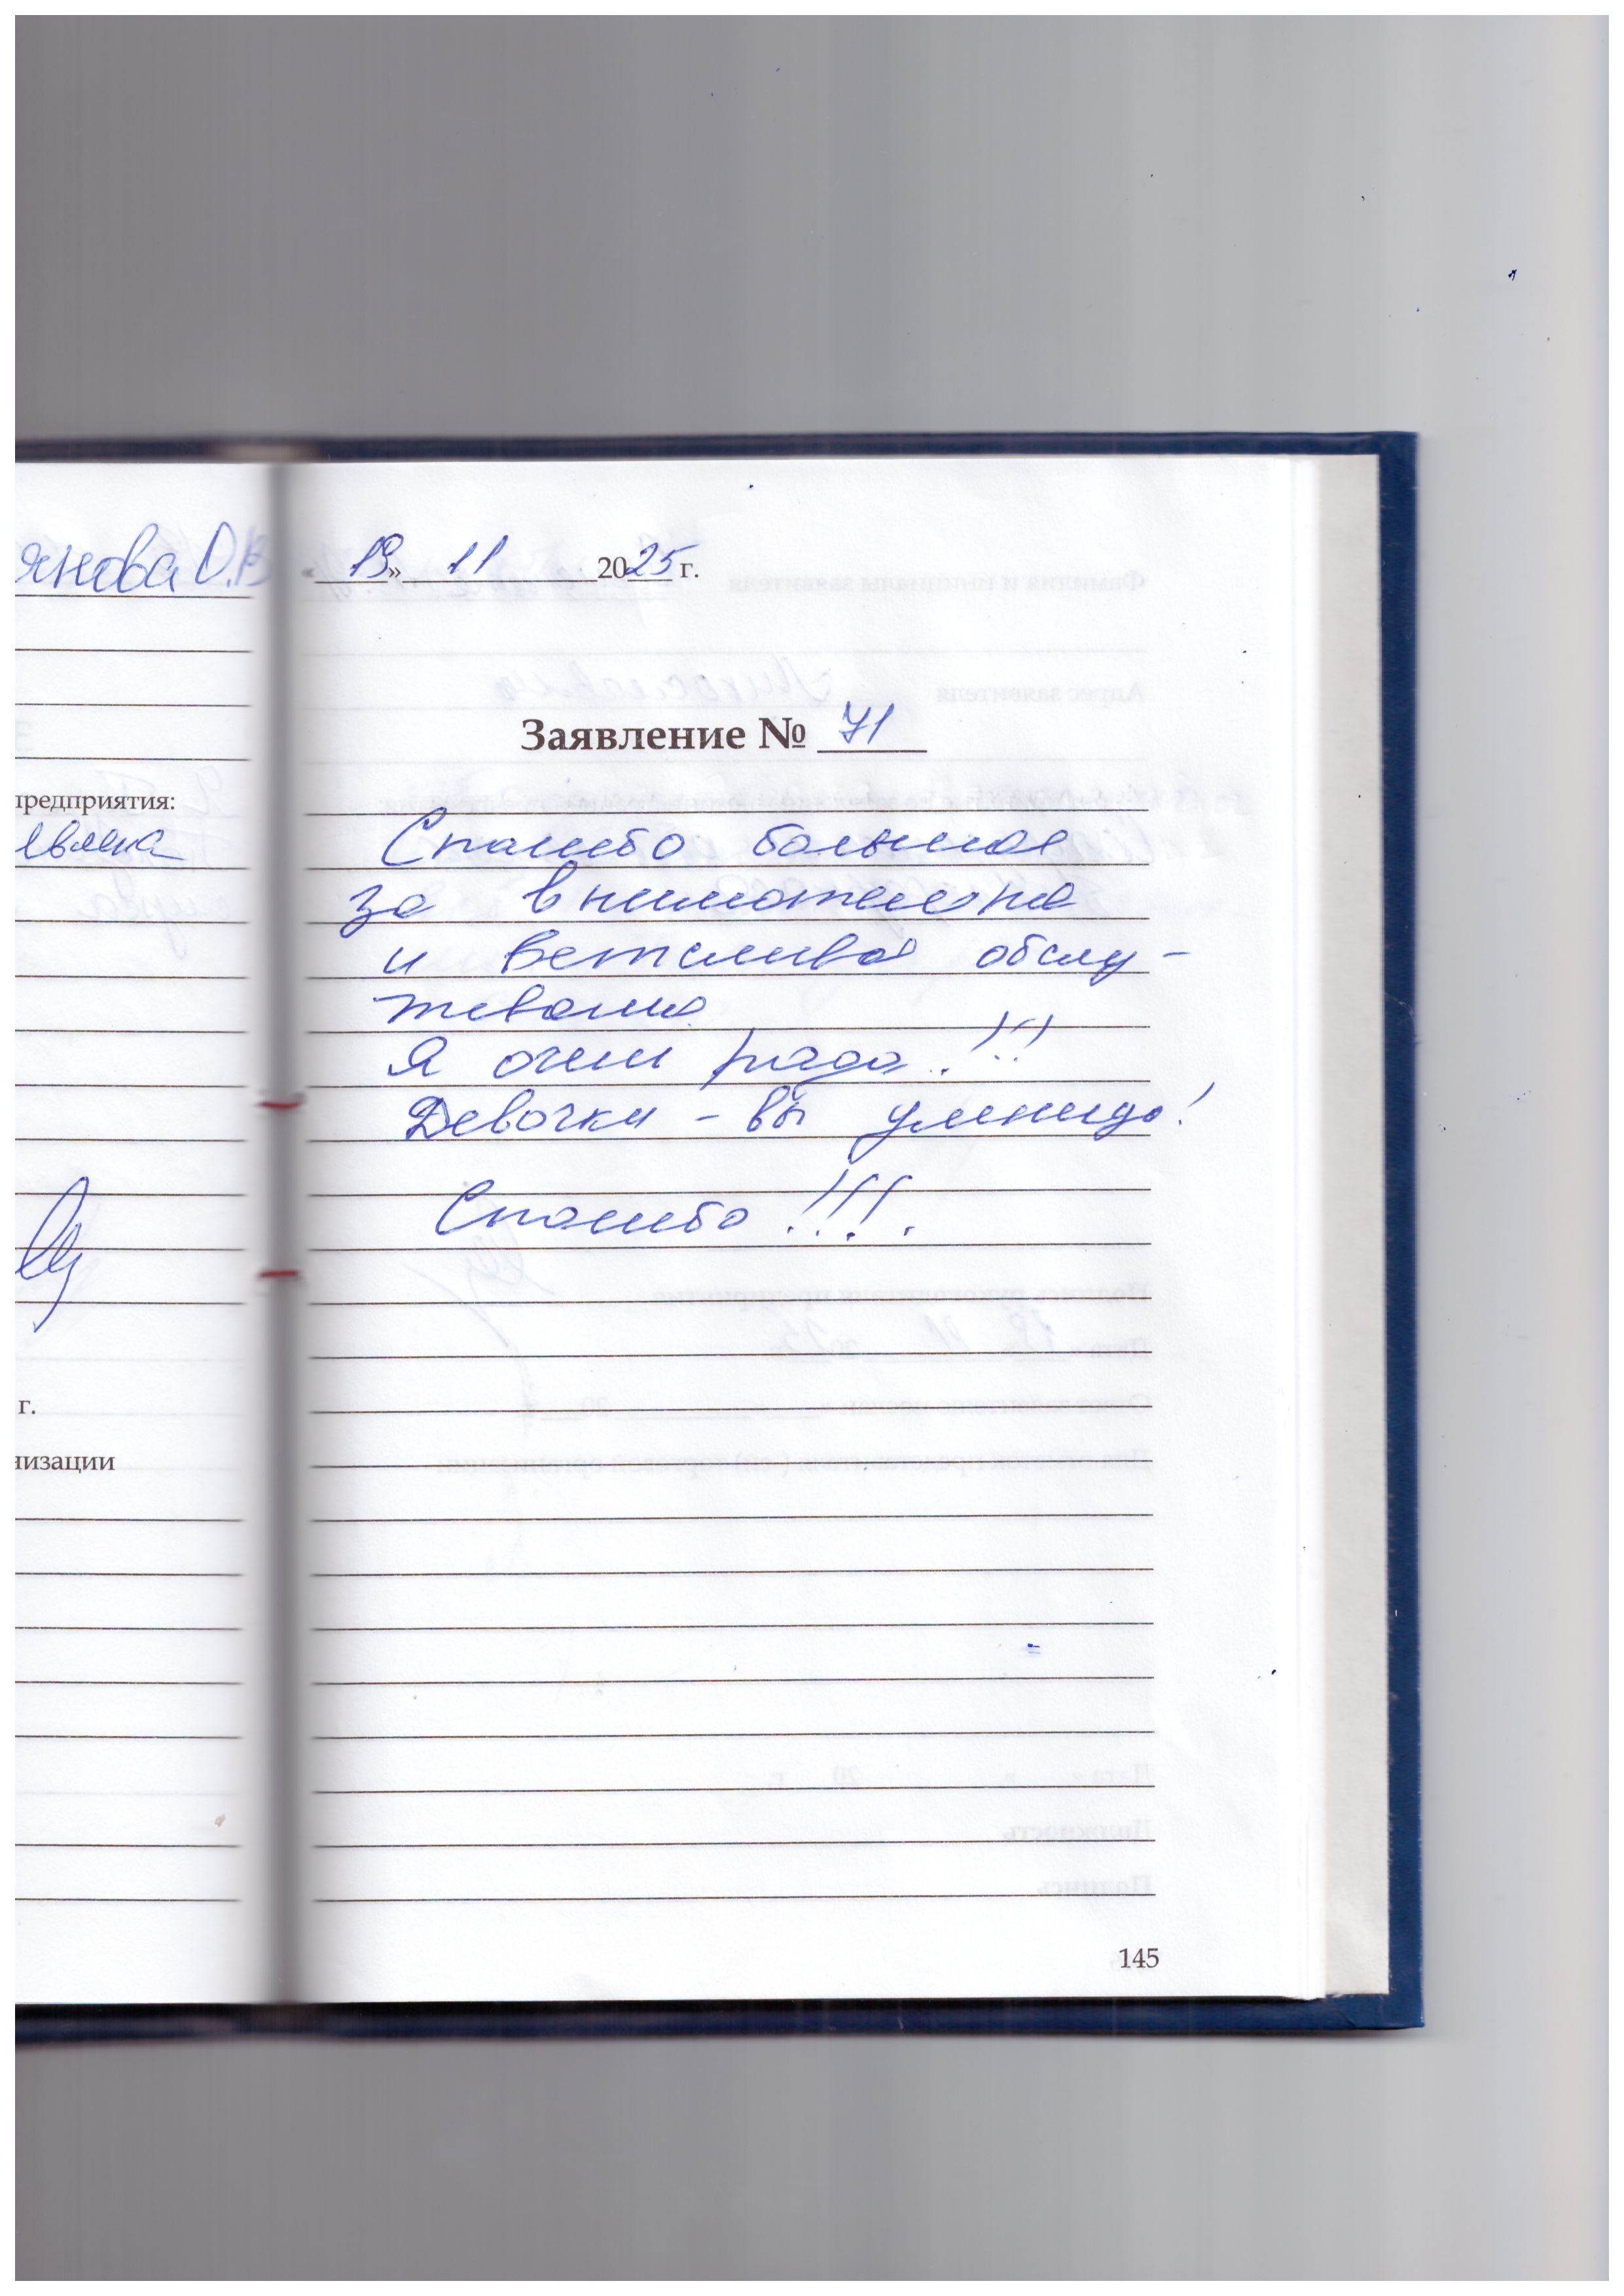 янова О.В
предприятия:
г.
низации
« 19 » 11 2025 г.
Заявление № 71
Спасибо большое
за внимательное
и вежливое обслу-
живание
Я очень рада!!!
Девочки - вы умницы!
Спасибо!!!!
145